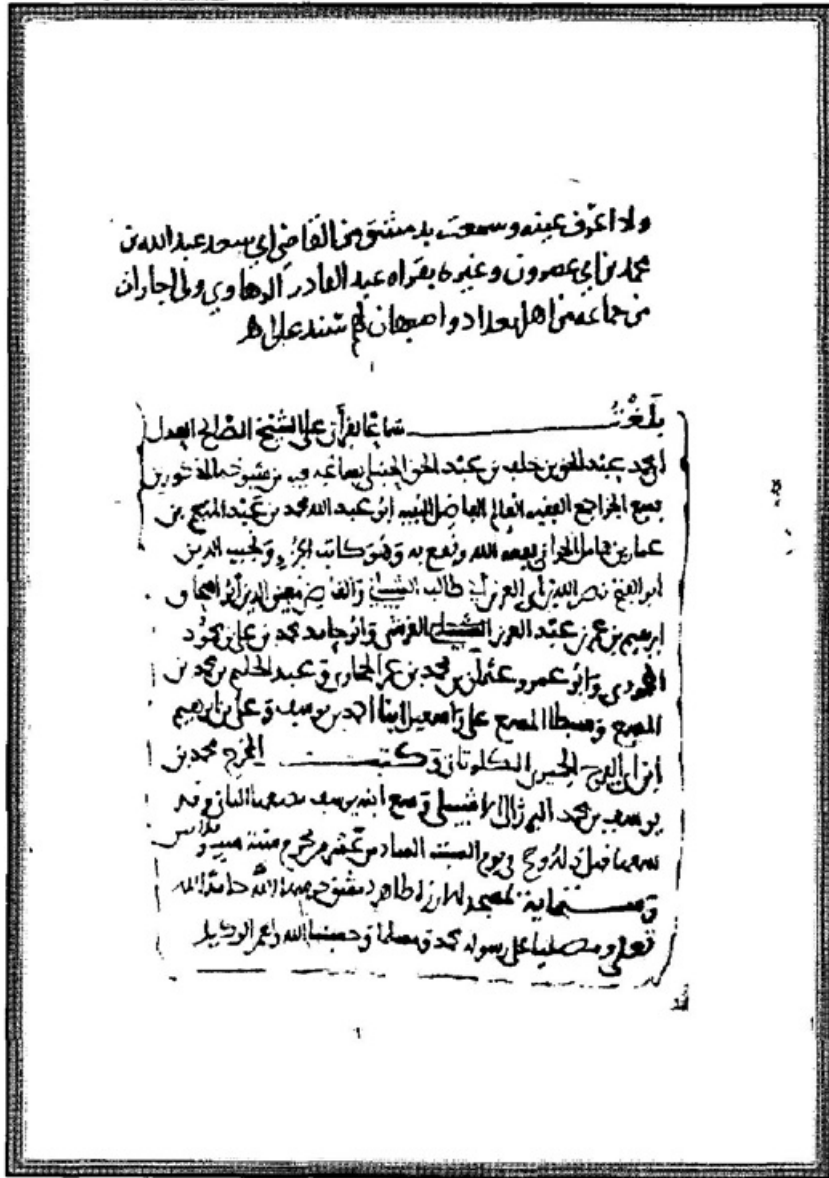 ولا اعرف عينه وسمعت بدمشق من القاضي ابي سعد عبد الله بن
محمد بن ابي عصرون وغيره بقراه عبد القادر الرهاوي ولي اجازات
من جماعه من اهل بغداد واصبهان لم
بلغت سماعا بقراتي على الشيخ الصالح العدل
ابي محمد عبد الحق بن خلف بن عبد الحق الحنبلي بسماعه فيه من شيوخه المذكورين
بجميع الفقيه العالم الفاضل ابو عبد الله محمد بن عبد المنعم بن
عمار بن هامل الحراني نفعه الله ونفع به وهو كاتب ونجيب الدين
ابو الفتح نصر الله بن ابي العز بن ابي طالب الشيباني والقاضي معين الدين ابو اسحاق
ابرهيم بن عمر بن عبد العزيز القرشي وابو حامد محمد بن علي بن محمود
المحمودي وابو عمرو عثمان بن محمد بن عبد الحليم بن محمد بن
المسمع وسبطا المسمع علي واسمعيل ابنا احمد بن يوسف وعلي بن ابرهيم
وكتب محمد بن
يوسف بن محمد البرزالي الاشبيلي وسمع ابنه يوسف
في يوم السبت السادس عشر من محرم سنة
وستماية دمشق حامدا لله
تعلى ومصليا على رسوله محمد ومسلما وحسبنا الله ونعم الوكيل